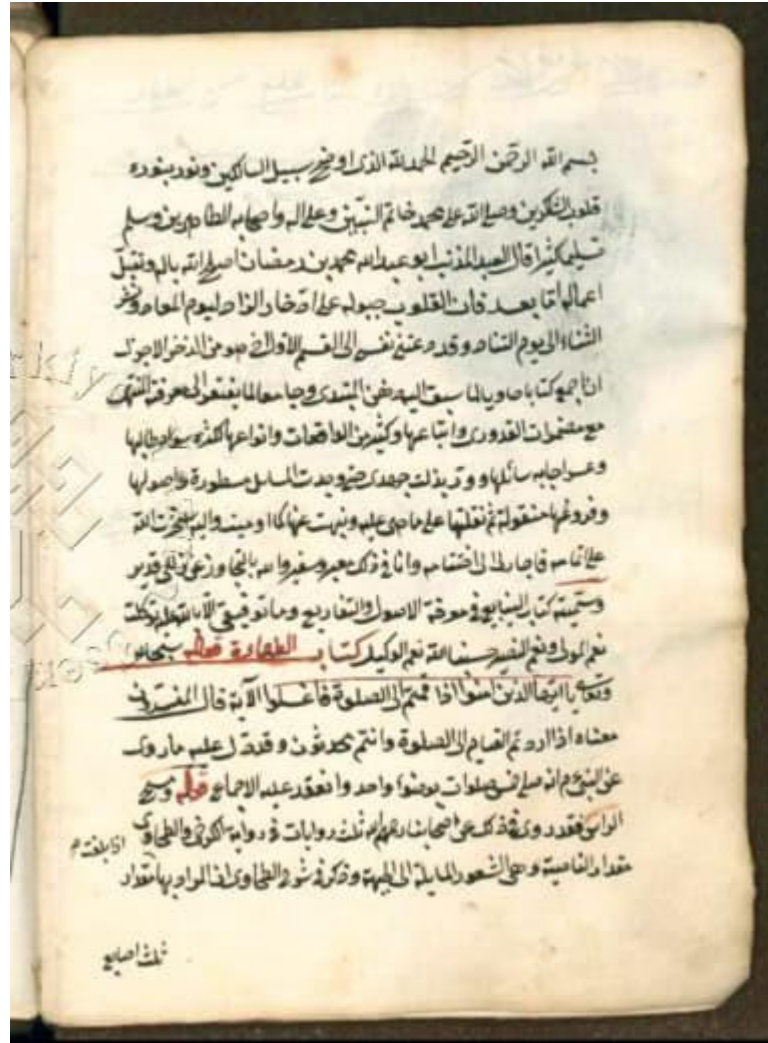 بسم الله الرحمن الرحيم الحمد لله الذى اوضح سبيل السالكين ونور بنوره
قلوب الشكورين وصلى الله على محمد خاتم النبيين وعلى اله واصحابه الطاهرين وسلم
تسليما كثيرا قال العبد المذنب ابو عبد الله محمد بن رمضان اصلح الله باله وتقبل
اعماله اما بعد فان القلوب مجبوله على ادخار الزاد ليوم المعاد ونشر
الثناء الى يوم التناد وقد دعتنى نفسى الى القسم الاول من الذخر الاجزل
ان اجمع كتابا حاويا لما سبق اليه المبتدى وجامعا لما يفتقر الى معرفة المنتهى
مع مضمرات القدورى واتباعها وكثير من الواقعات وانواعها طالبها
سائلها جهدى وجدت المسايل مسطورة واصولها
وفروعها منقولة ثم نقلتها على ما هى عليه ونبهت عنها كما
على اتمامه الى اختتامه وانا فى ذلك معبر وسفير والله
وسميته كتاب الينابيع فى معرفة الاصول والتفاريع وما توفيقى الا بالله عليه توكلت
نعم المولى ونعم النصير حسبنا الله نعم الوكيل كتاب الطهارة قوله سبحانه
وتعالى يا ايها الذين امنوا اذا قمتم الى الصلوة فاغسلوا الآية قال المفسرون
معناه اذا اردتم القيام الى الصلوة وانتم محدثون وقد دل عليه ما روى
عن النبى عم انه صلى خمس صلوات بوضوء واحد وانعقد عليه الاجماع قوله ومسح
الراس فقد روى فى ذلك عن اصحابنا رحمهم الله ثلث روايات فى رواية الكرخى والطحاوى
اذا بلغت م
مقدار الناصية وهى الشعور المايلة الى الجبهة وذكر فى شرح الطحاوى ان المراد بها مقدار
ثلث اصابع